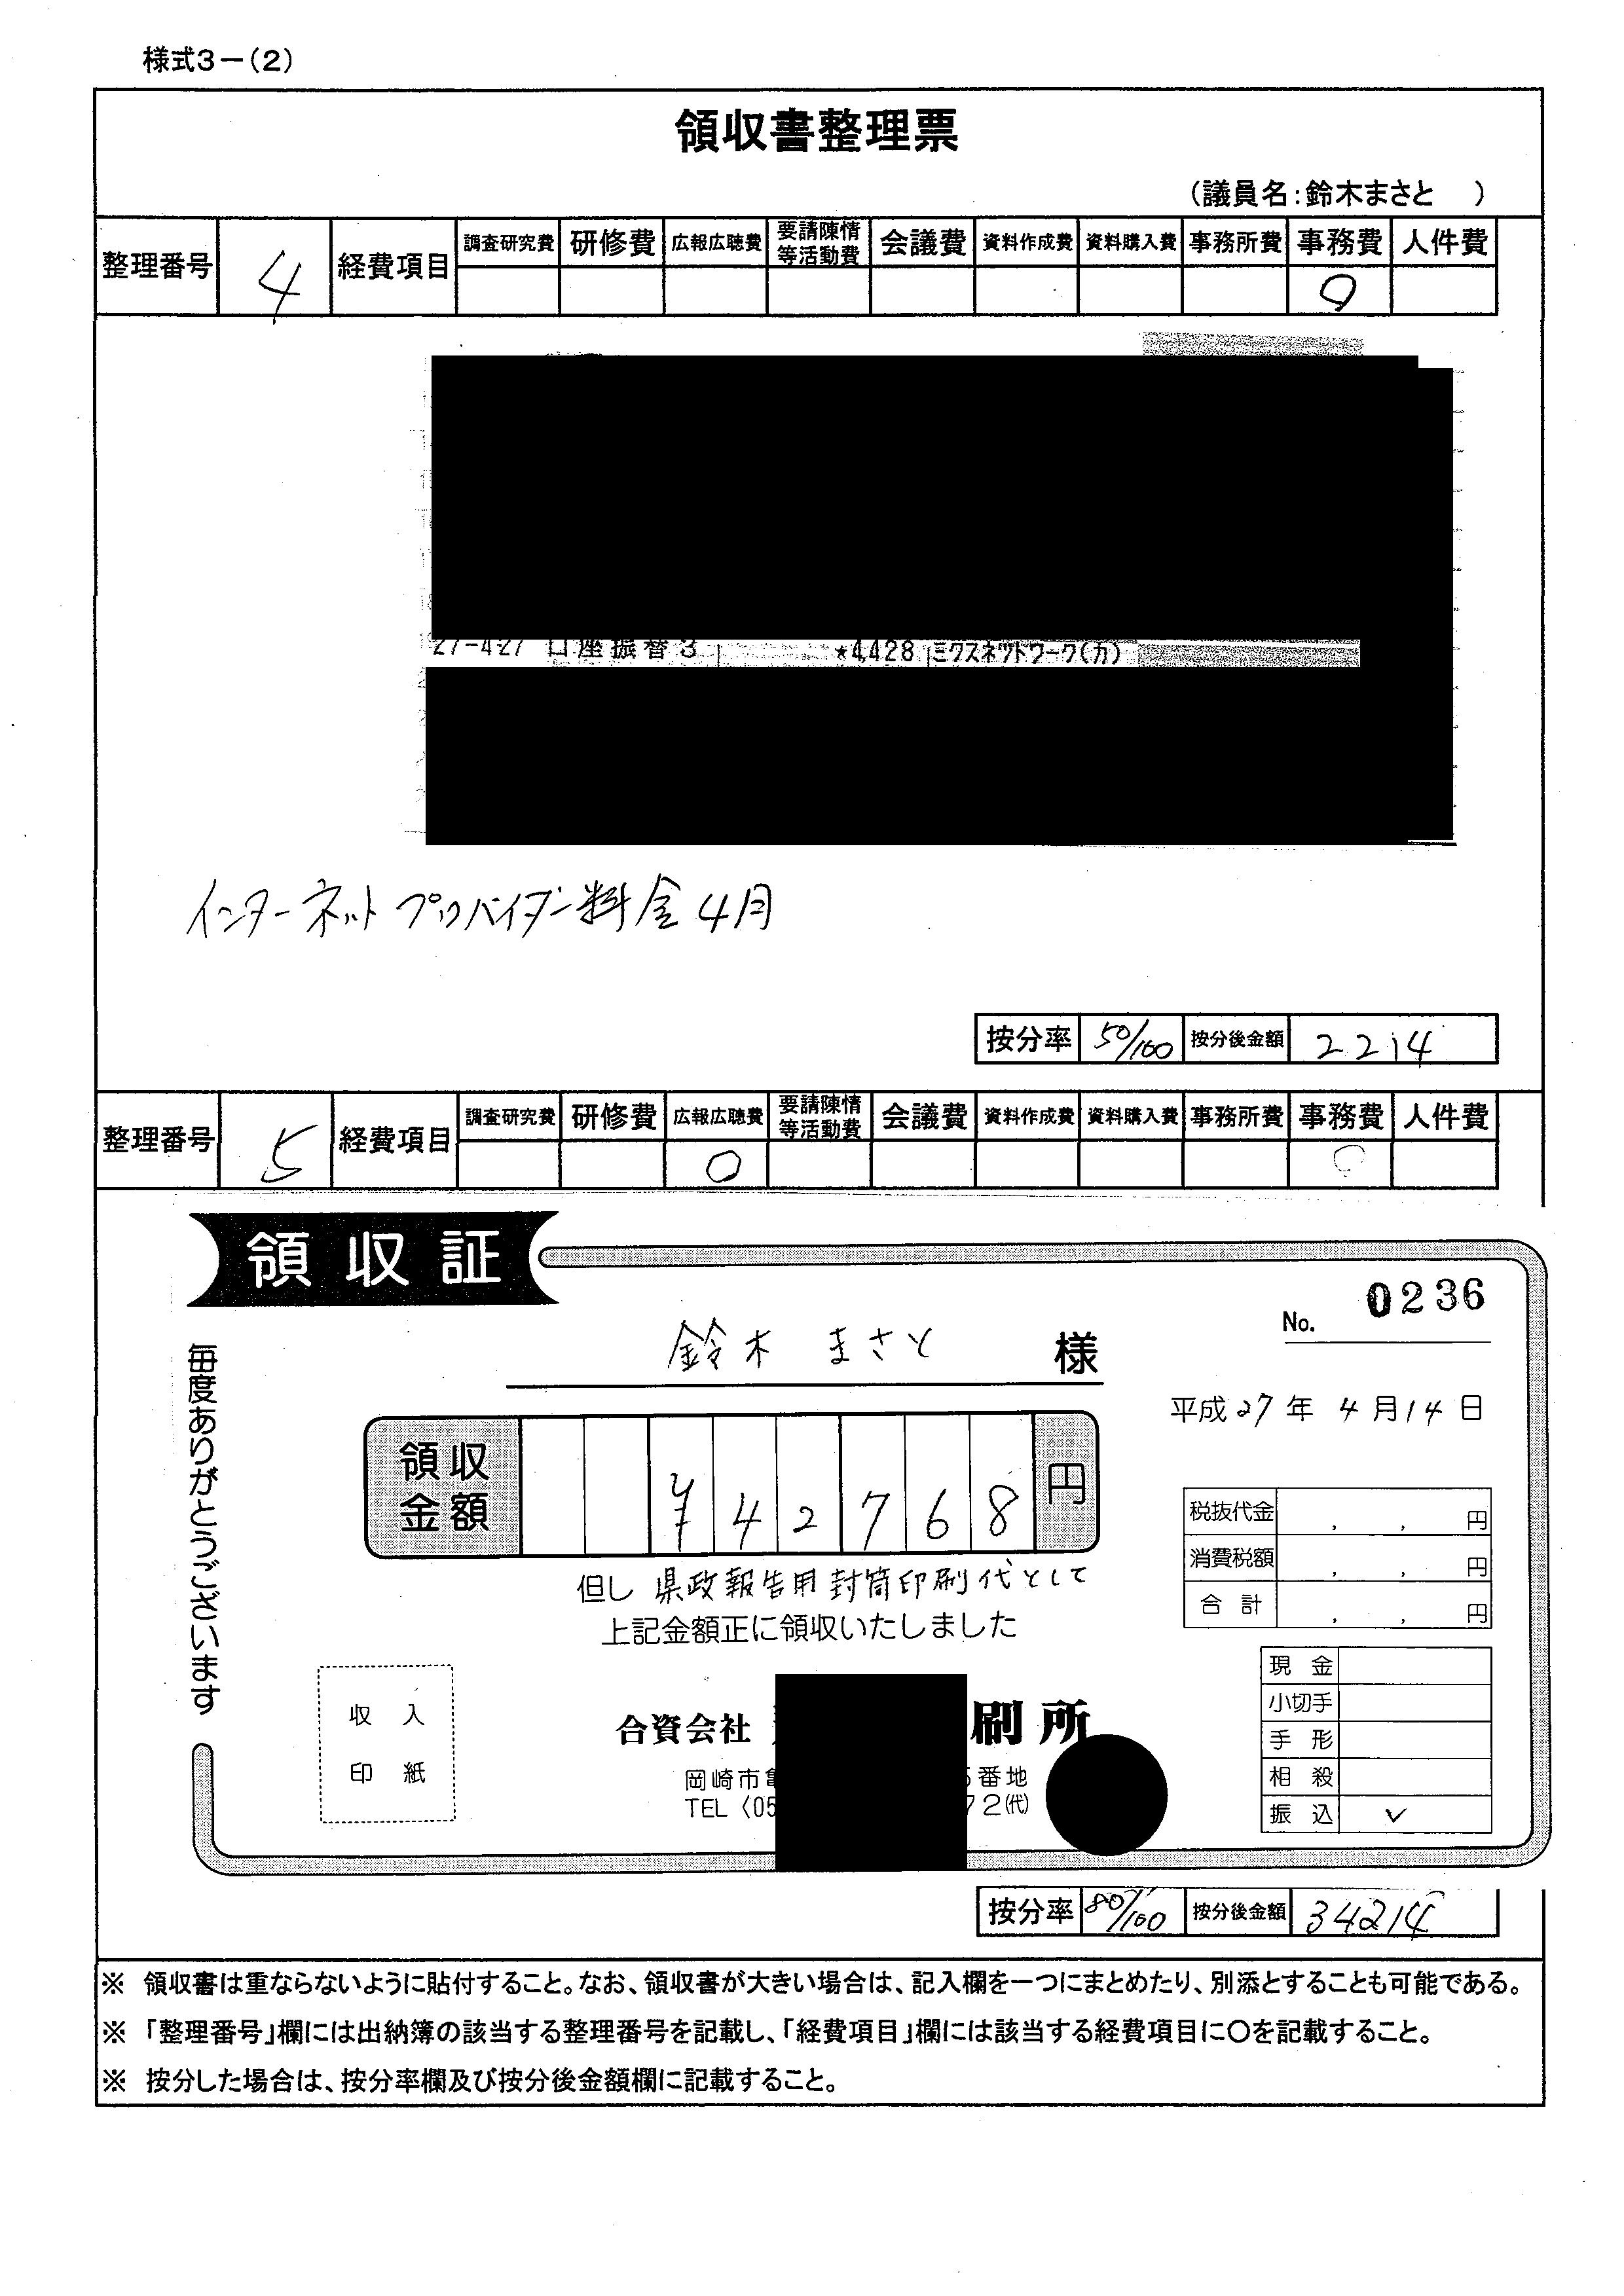 様式3－(2)
領収書整理票
(議員名:鈴木まさと　)
整理番号 4 経費項目 調査研究費 研修費 広報広聴費 要請陳情等活動費 会議費 資料作成費 資料購入費 事務所費 事務費 人件費
○
27-4-27 口座振替3 *4,428 ミクスネツトワーク(カ)
インターネットプロバイダー料金4月
按分率 50/100 按分後金額 2214
整理番号 5 経費項目 調査研究費 研修費 広報広聴費 要請陳情等活動費 会議費 資料作成費 資料購入費 事務所費 事務費 人件費
○ ○
領収証
No. 0236
鈴木 まさと 様
平成27年 4月14日
毎度ありがとうございます
領収金額 ¥42768円
税抜代金 , , 円
消費税額 , , 円
合計 , , 円
但し 県政報告用封筒印刷代として
上記金額正に領収いたしました
収入
印紙
合資会社 刷所
岡崎市 番地
TEL〈05 72㈹
現金
小切手
手形
相殺
振込 ✓
按分率 80/100 按分後金額 34214
※ 領収書は重ならないように貼付すること。なお、領収書が大きい場合は、記入欄を一つにまとめたり、別添とすることも可能である。
※ 「整理番号」欄には出納簿の該当する整理番号を記載し、「経費項目」欄には該当する経費項目に○を記載すること。
※ 按分した場合は、按分率欄及び按分後金額欄に記載すること。